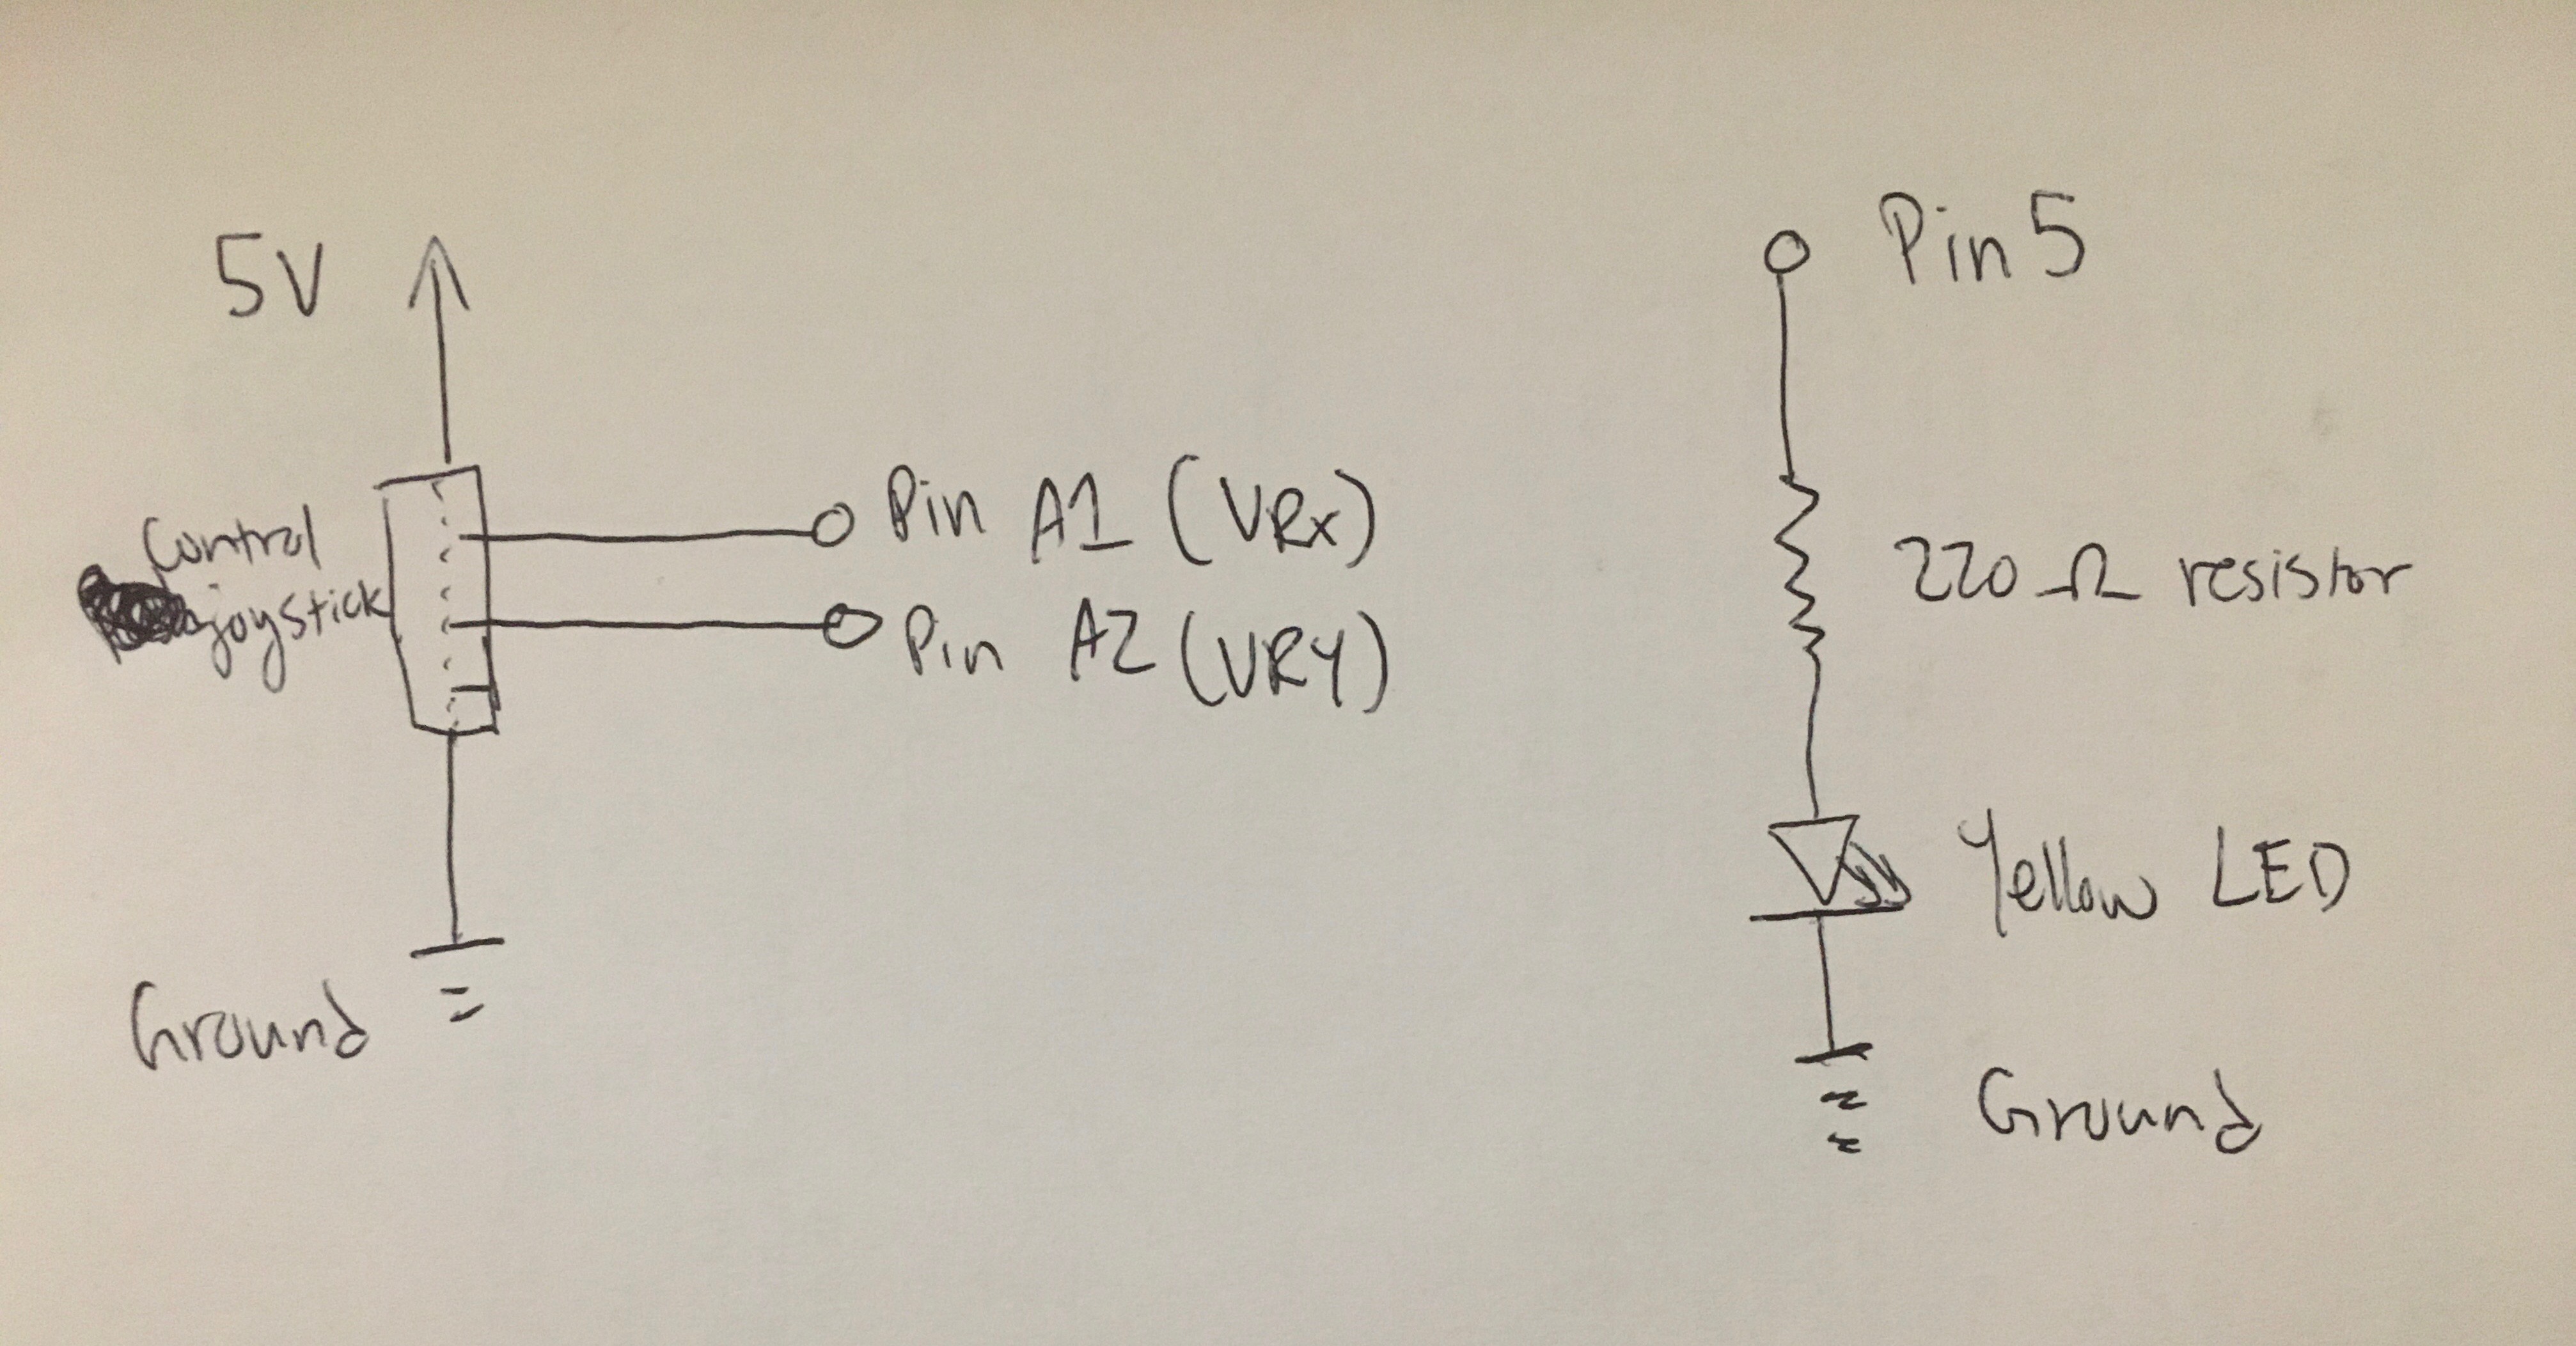 5V
Control
joystick
Pin A1 (VRx)
Pin A2 (VRY)
Ground
Pin 5
220 Ω resistor
Yellow LED
Ground